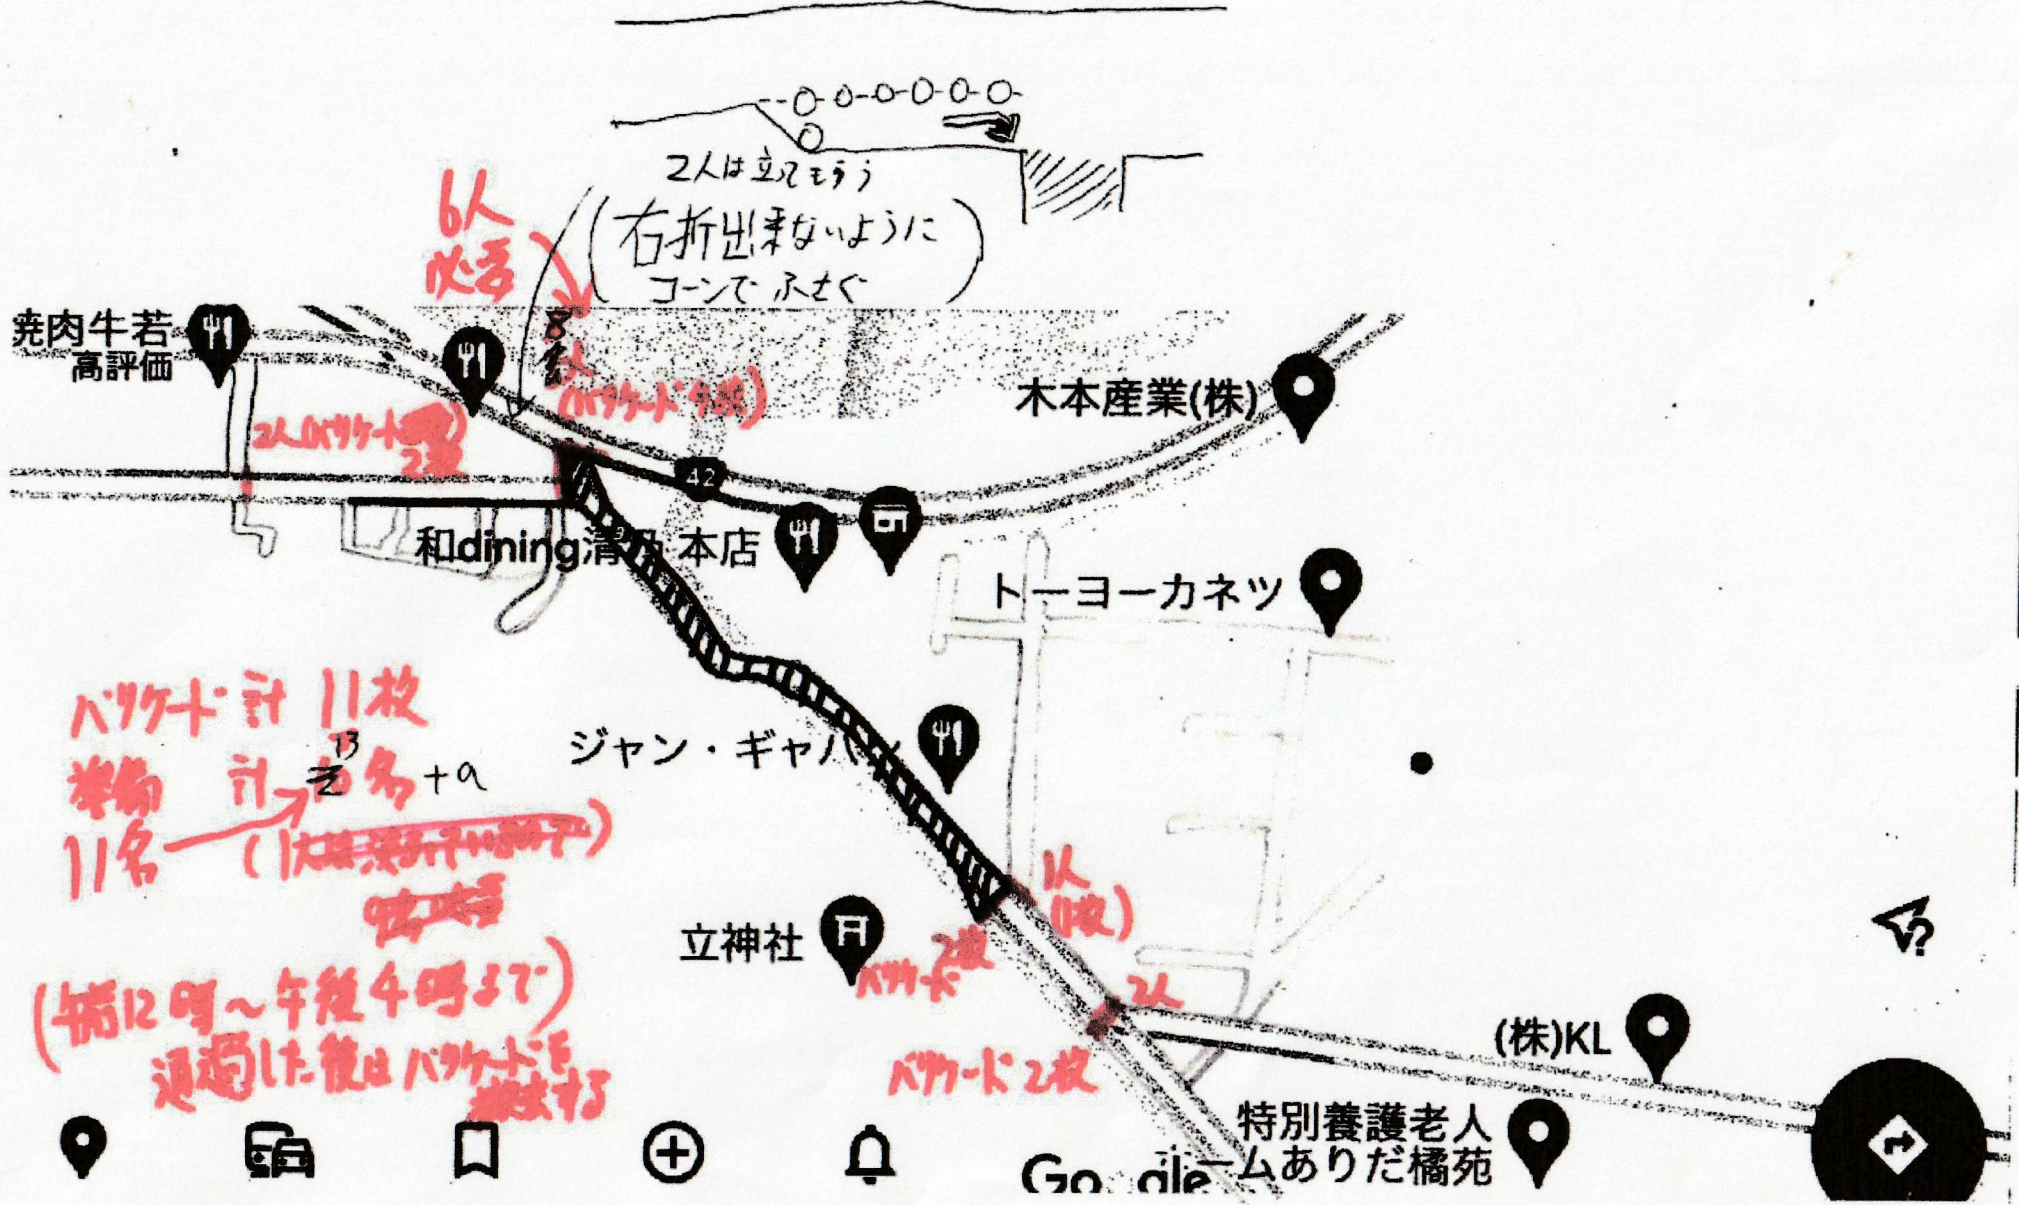 2人は立ってもらう
(右折出来ないように
コーンでふさぐ)
6人
必要
8名
(バリケード
焼肉牛若
高評価
2人(バリケード
2枚
木本産業(株)
42
和dining清乃 本店
トーヨーカネツ
バリケード 計 11枚
計 13名 +α
11名
ジャン・ギャバン
1人
(1枚)
立神社
2枚
バリケード
2人
(午前12時～午後4時まで)
通過した後はバリケードを
撤去する
バリケード2枚
(株)KL
特別養護老人
ームありだ橘苑
Google